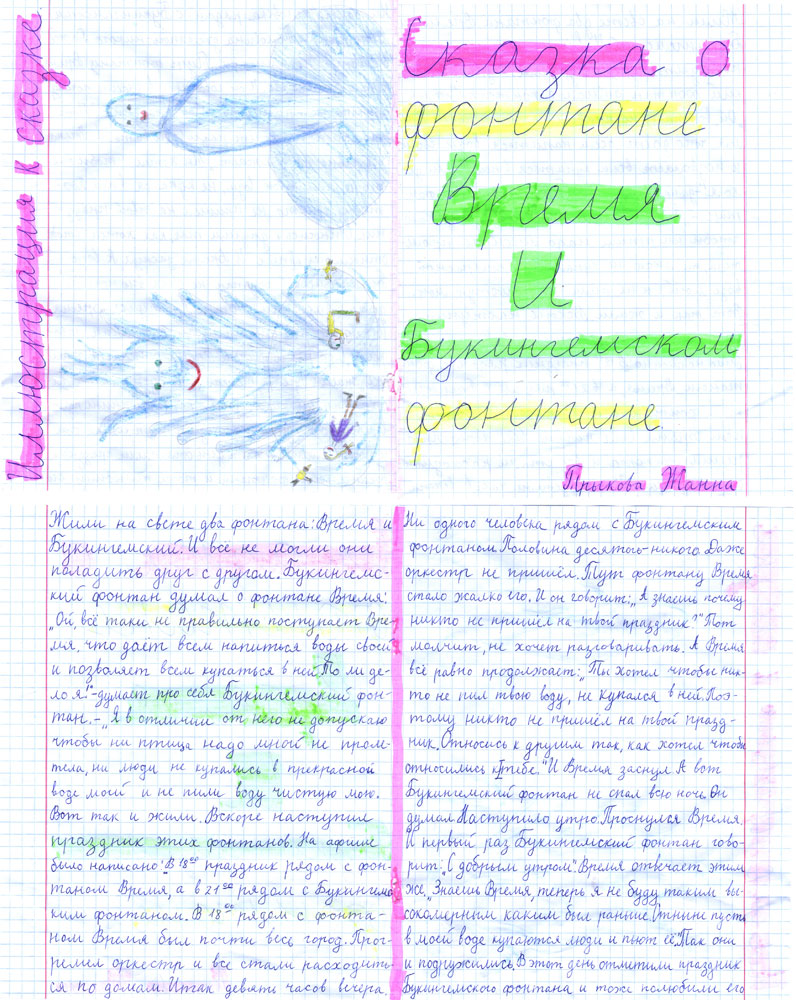 Иллюстрация к сказке.
Сказка о
фонтане
Время
И
Букингемском
фонтане.
Прыкова Жанна
Жили на свете два фонтана: Время и
Букингемский. И все не могли они
поладить друг с другом. Букингемс-
кий фонтан думал о фонтане Время:
„Ой всё таки не правильно поступает Вре-
мя, что даёт всем напиться воды своей
и позволяет всем купаться в ней. То ли де-
ло я!“-думает про себя Букингемский фон-
тан.-„Я в отличии от него не допускаю
чтобы ни птица надо мной не проле-
тела, ни люди не купались в прекрасной
воде моей и не пили воду чистую мою.
Вот так и жили. Вскоре наступил
праздник этих фонтанов. На афише
было написано: В 18⁰⁰ праздник рядом с фон-
таном Время, а в 21⁰⁰ рядом с Букингемс-
ким фонтаном. В 18⁰⁰ рядом с фонта-
ном Время был почти весь город. Прог-
ремел оркестр и все стали расходить-
ся по домам. Итак девять часов вечера.
Ни одного человека рядом с Букингемским
фонтаном. Половина десятого-никого. Даже
оркестр не пришёл. Тут фонтану Время
стало жалко его. И он говорит: „А знаешь почему
никто не пришёл на твой праздник?“ Тот
молчит, не хочет разговаривать. А Время
всё равно продолжает: „Ты хотел чтобы ник-
то не пил твою воду, не купался в ней. Поэ-
тому никто не пришёл на твой празд-
ник. Относись к другим так, как хотел чтобы
относились к тебе.“ И Время заснул. А вот
Букингемский фонтан не спал всю ночь. Он
думал. Наступило утро. Проснулся Время,
И первый раз Букингемский фонтан гово-
рит: „С добрым утром“. Время отвечает этим
же. „Знаешь Время, теперь я не буду таким вы-
сокомерным каким был раньше. Отныне пусть
в моей воде купаются люди и пьют её.“ Так они
и подружились. В этот день отметили праздник
Букингемского фонтана и тоже полюбили его